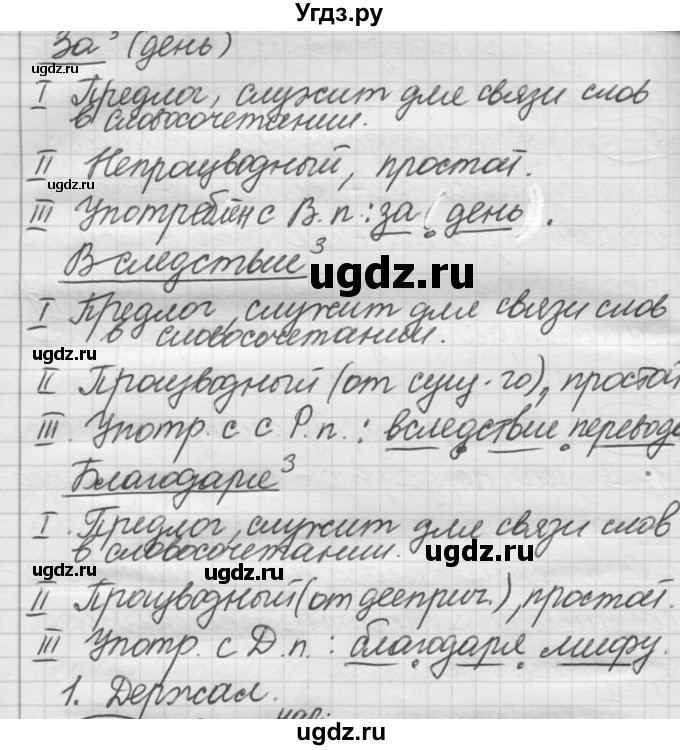 Угдз.ру
За³ (день)
ugdz.ru
I Предлог, служит для связи слов
в словосочетании.
II Непроизводный, простой.
ugdz.ru
III Употреблён с В.п.: за (день).
Вследствие³
ugdz.ru
I Предлог, служит для связи слов
в словосочетании.
ugdz.ru
II Производный (от сущ-го), простой
III. Употр. с с Р.п.: вследствие перевода
ugdz.ru
Благодаря³
I. Предлог, служит для связи слов
в словосочетании.
ugdz.ru
ugdz.ru
ugdz.ru
II Производный (от дееприч.), простой.
III Употр. с Д.п.: благодаря мифу.
ugdz.ru
ugdz.ru
1. Держал.
©ugdz.ru